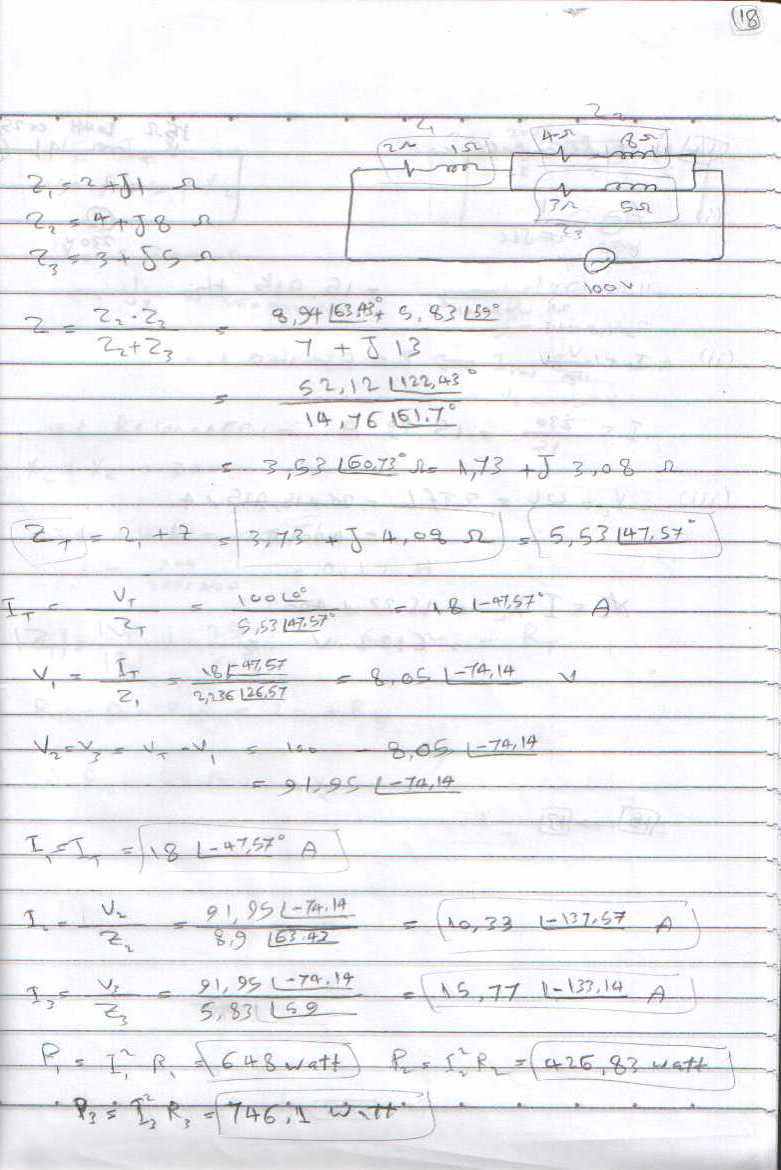 18
Z₁
2Ω 1Ω
Z₂
4Ω 8Ω
3Ω 5Ω
Z₃
100 V
Z₁ = 2 + J1 Ω
Z₂ = 4 + J8 Ω
Z₃ = 3 + J5 Ω
Z = Z₂·Z₃ / Z₂+Z₃ = 8,94 ∠63.43° * 5,83 ∠59° / 7 + J 13
= 52,12 ∠122,43° / 14,76 ∠61.7°
= 3,53 ∠60.73° Ω = 1,73 + J 3,08 Ω
Z_T = Z₁ + Z = 3,73 + J 4,08 Ω = 5,53 ∠47,57°
I_T = V_T / Z_T = 100∠0° / 5,53 ∠47.57° = 18 ∠-47,57° A
V₁ = I_T / Z₁ = 18 ∠-47,57 / 2,236 ∠26,57 = 8,05 ∠-74,14 V
V₂ = V₃ = V_T - V₁ = 100 - 8,05 ∠-74,14
= 91,95 ∠-74,14
I₁ = I_T = 18 ∠-47,57° A
I₂ = V₂ / Z₂ = 91,95 ∠-74.14 / 8.9 ∠63.43 = 10,33 ∠-137,57 A
I₃ = V₃ / Z₃ = 91,95 ∠-74.14 / 5,83 ∠59 = 15,77 ∠-133,14 A
P₁ = I₁² R₁ = 648 watt P₂ = I₂² R₂ = 426,83 watt
P₃ = I₃² R₃ = 746,1 watt